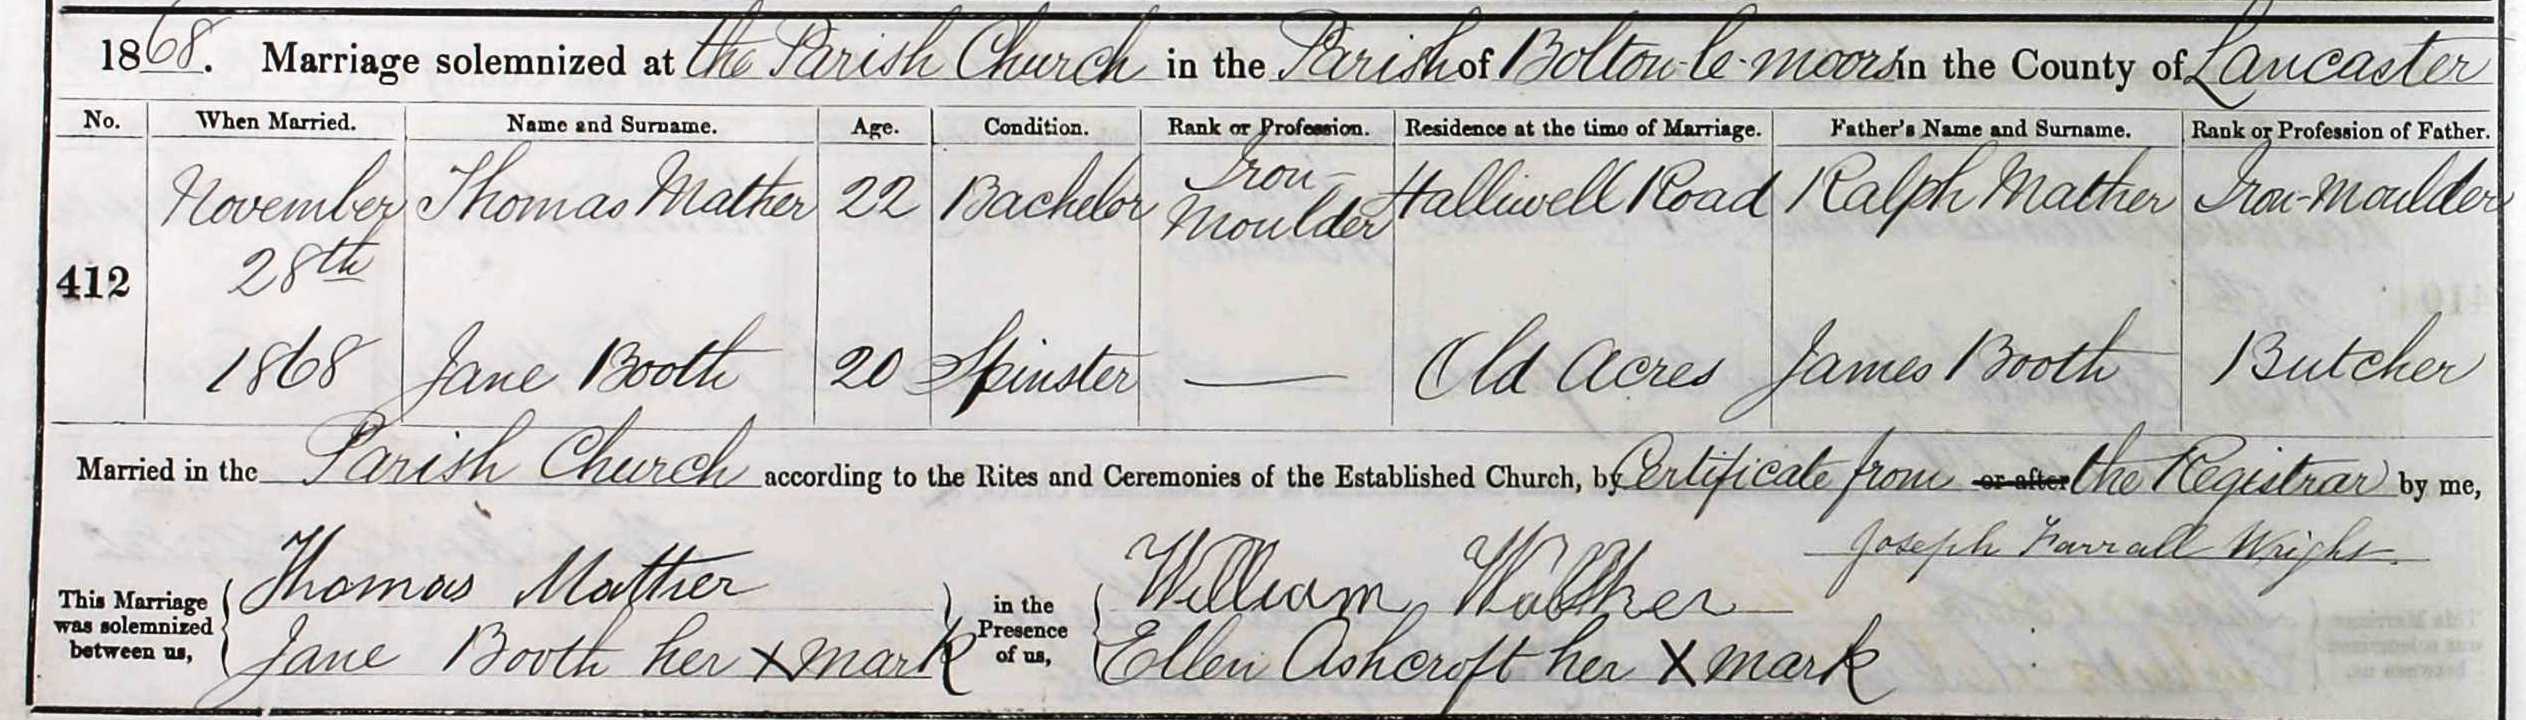 1868. Marriage solemnized at the Parish Church in the Parish of Bolton-le-moors in the County of Lancaster
No. When Married. Name and Surname. Age. Condition. Rank or Profession. Residence at the time of Marriage. Father's Name and Surname. Rank or Profession of Father.
412
November 28th 1868
Thomas Mather 22 Bachelor Iron-Moulder Halliwell Road Ralph Mather Iron-Moulder
Jane Booth 20 Spinster — Old Acres James Booth Butcher
Married in the Parish Church according to the Rites and Ceremonies of the Established Church, by Certificate from or after the Registrar by me,
Joseph Farrall Wright
This Marriage was solemnized between us,
Thomas Mather
Jane Booth her X mark
in the Presence of us,
William Walker
Ellen Ashcroft her X mark